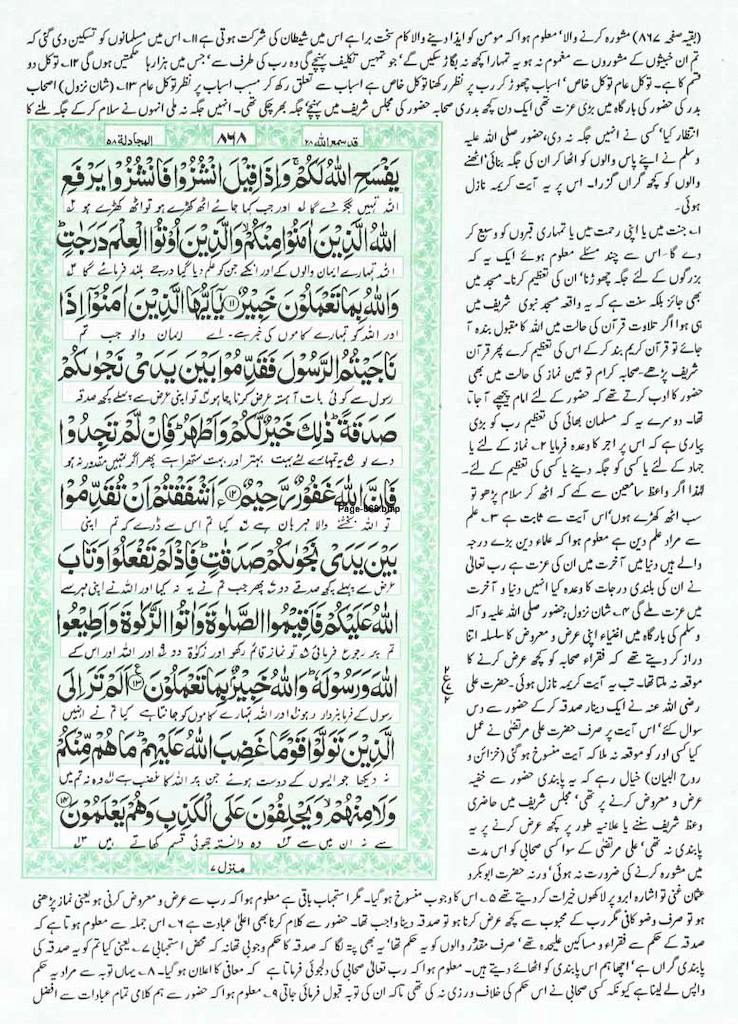 (بقیہ صفحہ ۸۶۷) مشورہ کرنے والا' معلوم ہوا کہ مومن کو ایذا دینے والا کام سخت برا ہے اس میں شیطان کی شرکت ہوتی ہے ۱۱۔ اس میں مسلمانوں کو تسکین دی گئی کہ
تم ان خبیثوں کے مشوروں سے مغموم نہ ہو یہ تمہارا کچھ نہ بگاڑ سکیں گے' جو تمہیں تکلیف پہنچے گی وہ رب کی طرف سے' جس میں ہزارہا حکمتیں ہوں گی ۱۲۔ توکل دو
قسم کا ہے۔ توکل عام توکل خاص' اسباب چھوڑ کر رب پر نظر رکھنا توکل خاص ہے اسباب سے تعلق رکھ کر مسبب اسباب پر نظر توکل عام ۱۳۔ (شان نزول) اصحاب
بدر کی حضور کی بارگاہ میں بڑی عزت تھی ایک دن کچھ بدری صحابہ حضور کی مجلس شریف میں پہنچے جگہ بھر چکی تھی۔ انہیں جگہ نہ ملی انہوں نے سلام کر کے جگہ ملنے کا
انتظار کیا' کسی نے انہیں جگہ نہ دی' حضور صلی اللہ علیہ
وسلم نے اپنے پاس والوں کو اٹھا کر ان کی جگہ بنائی' اٹھنے
والوں کو کچھ گراں گزرا۔ اس پر یہ آیت کریمہ نازل
ہوئی۔
۱۔ جنت میں یا اپنی رحمت میں یا تمہاری قبروں کو وسیع کر
دے گا۔ اس سے چند مسئلے معلوم ہوئے ایک یہ کہ
بزرگوں کے لئے جگہ چھوڑنا' ان کی تعظیم کرنا۔ مسجد میں
بھی جائز بلکہ سنت ہے کہ یہ واقعہ مسجد نبوی شریف میں
ہی ہوا اگر تلاوت قرآن کی حالت میں اللہ کا مقبول بندہ آ
جائے تو قرآن کریم بند کر کے اس کی تعظیم کرے پھر قرآن
شریف پڑھے۔ صحابہ کرام تو عین نماز کی حالت میں بھی
حضور کا ادب کرتے تھے کہ حضور کے لئے امام پیچھے آ جاتا
تھا۔ دوسرے یہ کہ مسلمان بھائی کی تعظیم رب کو بڑی
پیاری ہے کہ اس پر اجر کا وعدہ فرمایا ۲۔ نماز کے لئے یا
جہاد کے لئے یا کسی کو جگہ دینے یا کسی کی تعظیم کے لئے۔
لہٰذا اگر واعظ سامعین سے کہے کہ اٹھ کر سلام پڑھو تو
سب اٹھ کھڑے ہوں' اس آیت سے ثابت ہے ۳۔ علم
سے مراد علم دین ہے معلوم ہوا کہ علماء دین بڑے درجہ
والے ہیں دنیا میں آخرت میں ان کی عزت ہے رب تعالیٰ
نے ان کی بلندی درجات کا وعدہ کیا انہیں دنیا و آخرت
میں عزت ملے گی ۴۔ شان نزول: حضور صلی اللہ علیہ و آلہ
وسلم کی بارگاہ میں اغنیاء اپنی عرض و معروض کا سلسلہ اتنا
دراز کر دیتے تھے کہ فقراء صحابہ کو کچھ عرض کرنے کا
موقعہ نہ ملتا تھا۔ تب یہ آیت کریمہ نازل ہوئی۔ حضرت علی
رضی اللہ عنہ نے ایک دینار صدقہ کر کے حضور سے دس
سوال کئے' اس آیت پر صرف حضرت علی مرتضیٰ نے عمل
کیا کسی اور کو موقعہ نہ ملا کہ آیت منسوخ ہو گئی (خزائن و
روح البیان) خیال رہے کہ یہ پابندی حضور سے خفیہ
عرض و معروض کرنے پر تھی' مجلس شریف میں حاضری
وعظ شریف سننے یا علانیہ طور پر کچھ عرض کرنے پر یہ
پابندی نہ تھی' علی مرتضیٰ کے سوا کسی صحابی کو اس مدت
میں مشورہ کرنے کی ضرورت نہ ہوئی' ورنہ حضرت ابوبکر و
قد سمع اللہ ۲۸
۸۶۸
المجادلة ۵۸
يَفْسَحِ اللّٰهُ لَكُمْ ۚ وَاِذَا قِيْلَ انْشُزُوْا فَانْشُزُوْا يَرْفَعِ
اللہ تمہیں جگہ دے گا ۱۔ اور جب کہا جائے اٹھ کھڑے ہو تو اٹھ کھڑے ہو ۲۔
اللّٰهُ الَّذِيْنَ اٰمَنُوْا مِنْكُمْ ۙ وَالَّذِيْنَ اُوْتُوا الْعِلْمَ دَرَجٰتٍ ؕ
اللہ تمہارے ایمان والوں کے اور انکے جن کو علم دیا گیا درجے بلند فرمائے گا ۳۔
وَاللّٰهُ بِمَا تَعْمَلُوْنَ خَبِيْرٌ ﴿۱۱﴾ يٰۤاَيُّهَا الَّذِيْنَ اٰمَنُوْۤا اِذَا
اور اللہ کو تمہارے کاموں کی خبر ہے۔ اے ایمان والو جب تم
نَاجَيْتُمُ الرَّسُوْلَ فَقَدِّمُوْا بَيْنَ يَدَيْ نَجْوٰىكُمْ
رسول سے کوئی بات آہستہ عرض کرنا چاہو تو اپنی عرض سے پہلے کچھ صدقہ
صَدَقَةً ؕ ذٰلِكَ خَيْرٌ لَّكُمْ وَاَطْهَرُ ؕ فَاِنْ لَّمْ تَجِدُوْا
دے لو ۴۔ یہ تمہارے لئے بہت بہتر اور بہت ستھرا ہے پھر اگر تمہیں مقدور نہ ہو
فَاِنَّ اللّٰهَ غَفُوْرٌ رَّحِيْمٌ ﴿۱۲﴾ ءَاَشْفَقْتُمْ اَنْ تُقَدِّمُوْا
Page-868.bmp
تو اللہ بخشنے والا مہربان ہے کیا تم اس سے ڈرے کہ تم اپنی
بَيْنَ يَدَيْ نَجْوٰىكُمْ صَدَقٰتٍ ؕ فَاِذْ لَمْ تَفْعَلُوْا وَتَابَ
عرض سے پہلے کچھ صدقے دو پھر جب تم نے یہ نہ کیا اور اللہ نے اپنی مہر سے
اللّٰهُ عَلَيْكُمْ فَاَقِيْمُوا الصَّلٰوةَ وَاٰتُوا الزَّكٰوةَ وَاَطِيْعُوا
تم پر رجوع فرمائی تو نماز قائم رکھو اور زکوٰۃ دو اور اللہ اور اس کے
اللّٰهَ وَرَسُوْلَهٗ ؕ وَاللّٰهُ خَبِيْرٌۢ بِمَا تَعْمَلُوْنَ ﴿۱۳﴾ اَلَمْ تَرَ اِلَى
رسول کے فرمانبردار رہو اور اللہ تمہارے کاموں کو جانتا ہے کیا تم نے انہیں
الَّذِيْنَ تَوَلَّوْا قَوْمًا غَضِبَ اللّٰهُ عَلَيْهِمْ ؕ مَا هُمْ مِّنْكُمْ
نہ دیکھا جو ایسوں کے دوست ہوئے جن پر اللہ کا غضب ہے وہ نہ تم میں
وَلَا مِنْهُمْ ۙ وَيَحْلِفُوْنَ عَلَى الْكَذِبِ وَهُمْ يَعْلَمُوْنَ ﴿۱۴﴾
سے نہ ان میں سے وہ دانستہ جھوٹی قسم کھاتے ہیں
منزل ۷
عثمان غنی تو اشارہ ابرو پر لاکھوں خیرات کر دیتے تھے ۵۔ اس کا وجوب منسوخ ہو گیا۔ مگر استحباب باقی ہے معلوم ہوا کہ رب سے عرض و معروض کرنی ہو یعنی نماز پڑھنی
ہو تو صرف وضو کافی مگر رب کے محبوب سے کچھ عرض کرنا ہو تو صدقہ دینا واجب تھا۔ حضور سے کلام کرنا بھی اعلیٰ عبادت ہے ۶۔ اس جملہ سے معلوم ہوتا ہے کہ
صدقہ کے حکم سے فقراء و مساکین علیحدہ تھے' صرف مقدور والوں کو یہ حکم تھا' یہ بھی پتہ لگا کہ صدقہ کا حکم وجوبی تھا نہ کہ محض استحبابی ۷۔ یعنی کیا تم کو یہ صدقہ کی
پابندی گراں ہے' اچھا ہم اس پابندی کو اٹھائے دیتے ہیں۔ معلوم ہوا کہ رب تعالیٰ صحابی کی دلجوئی فرماتا ہے کہ معافی کا اعلان ہو گیا۔ ۸۔ یہاں توبہ سے مراد یہ حکم
واپس لے لینا ہے کیونکہ کسی صحابی نے اس حکم کی خلاف ورزی نہ کی تھی تاکہ ان کی توبہ قبول فرمائی جاتی ۹۔ معلوم ہوا کہ حضور سے ہم کلامی تمام عبادات سے افضل